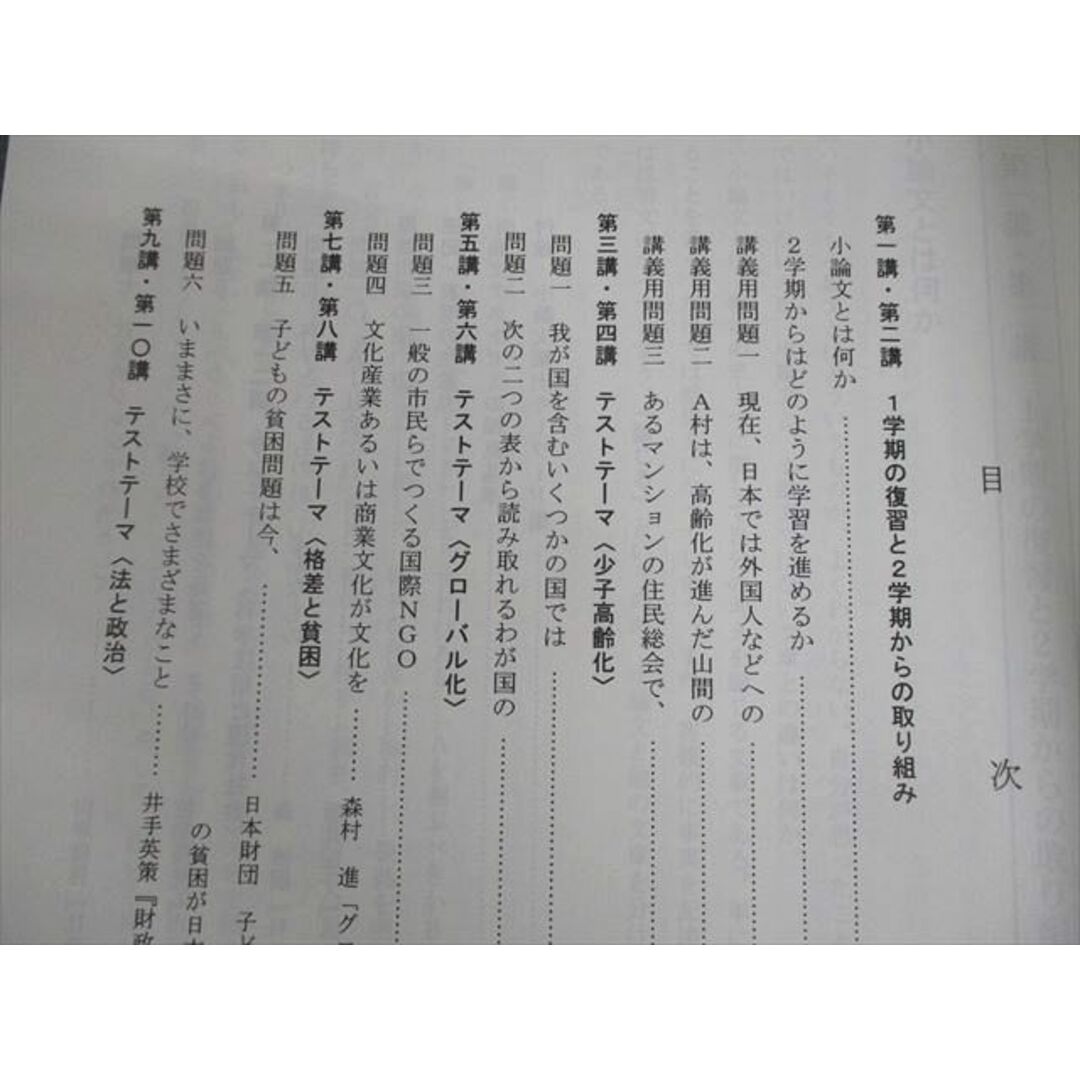 目次
第一講・第二講 1学期の復習と2学期からの取り組み
小論文とは何か
2学期からはどのように学習を進めるか
講義用問題一 現在、日本では外国人などへの
講義用問題二 A村は、高齢化が進んだ山間の
講義用問題三 あるマンションの住民総会で、
第三講・第四講 テストテーマ〈少子高齢化〉
問題一 我が国を含むいくつかの国では
問題二 次の二つの表から読み取れるわが国の
第五講・第六講 テストテーマ〈グローバル化〉
問題三 一般の市民らでつくる国際NGO
問題四 文化産業あるいは商業文化が文化を…… 森村 進「グ
第七講・第八講 テストテーマ〈格差と貧困〉
問題五 子どもの貧困問題は今、…… 日本財団 子ど
の貧困が日本
問題六 いままさに、学校でさまざまなこと…… 井手英策『財政
第九講・第一〇講 テストテーマ〈法と政治〉